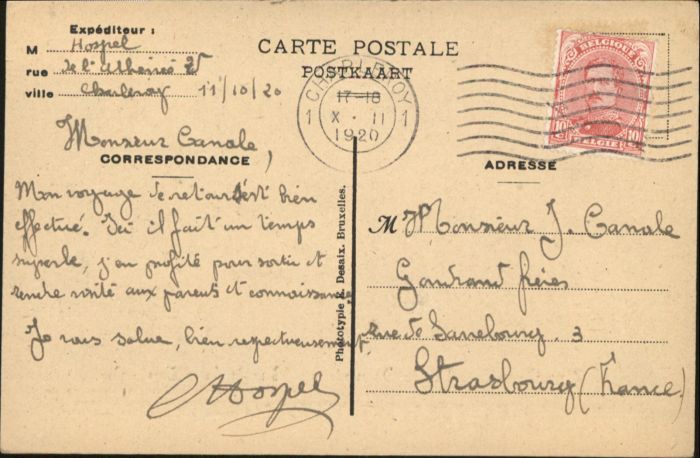 Expéditeur :
M Hospel
rue de l'Athénée 25
ville Charleroy 11/10/20
CARTE POSTALE
POSTKAART
CHARLEROY
17-18
1 X · 11 1
1920
BELGIQUE
10 10
BELGIË
Monsieur Canale,
CORRESPONDANCE
Mon voyage de retour s'est bien
effectué. Ici il fait un temps
superbe, j'en profite pour sortir et
rendre visite aux parents et connaissance
Je vous salue, bien respectueusement
Hospel
Phototypie Desaix. Bruxelles.
ADRESSE
M Monsieur J. Canale
Gondrand frères
rue de Sarrebourg. 3
Strasbourg (France)